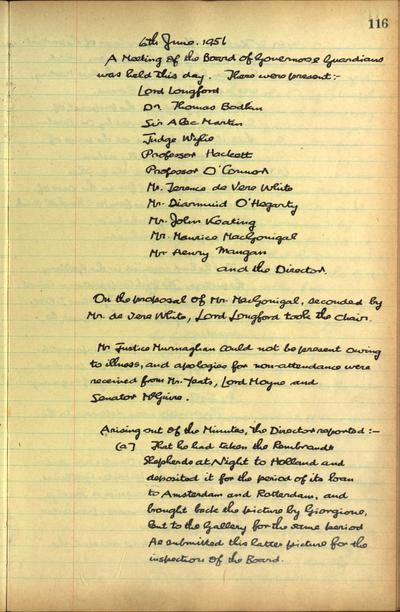 116
6th June. 1956
A Meeting of the Board of Governors & Guardians
was held this day. There were present:-
Lord Longford
Dr. Thomas Bodkin
Sir Alec Martin
Judge Wylie
Professor Hackett
Professor O'Connor
Mr. Terence de Vere White
Mr. Diarmuid O'Hegarty
Mr. John Keating
Mr. Maurice MacGonigal
Mr Henry Mangan
and the Director.
On the proposal of Mr. MacGonigal, seconded by
Mr. de Vere White, Lord Longford took the Chair.
Mr Justice Murnaghan could not be present owing
to illness, and apologies for non-attendance were
received from Mr. Yeats, Lord Moyne and
Senator McGuire.
Arising out of the Minutes, the Director reported:-
(a) That he had taken the Rembrandt
Shepherds at Night to Holland and
deposited it for the period of its loan
to Amsterdam and Rotterdam, and
brought back the picture by Giorgione,
lent to the Gallery for the same period
He submitted this latter picture for the
inspection of the Board.